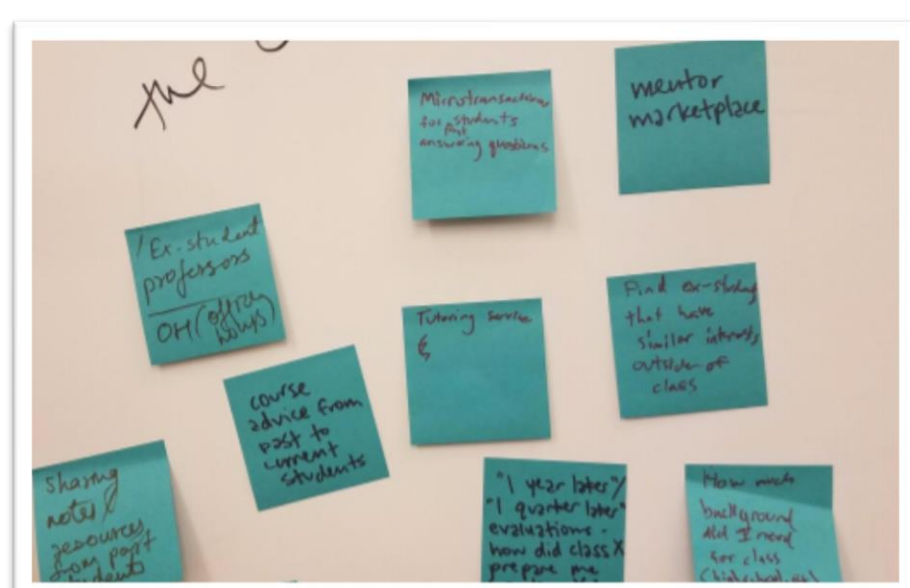 the
Microtransactions
for past students
answering questions
mentor
marketplace
Ex-student
professors
OH (office
hours)
Tutoring service
Find ex-students
that have
similar interests
outside of
class
course
advice from
past to
current
students
Sharing
notes/
resources
from past
students
"1 year later"/
"1 quarter later"
evaluations -
how did class X
prepare me
How much
background
did I need
for class